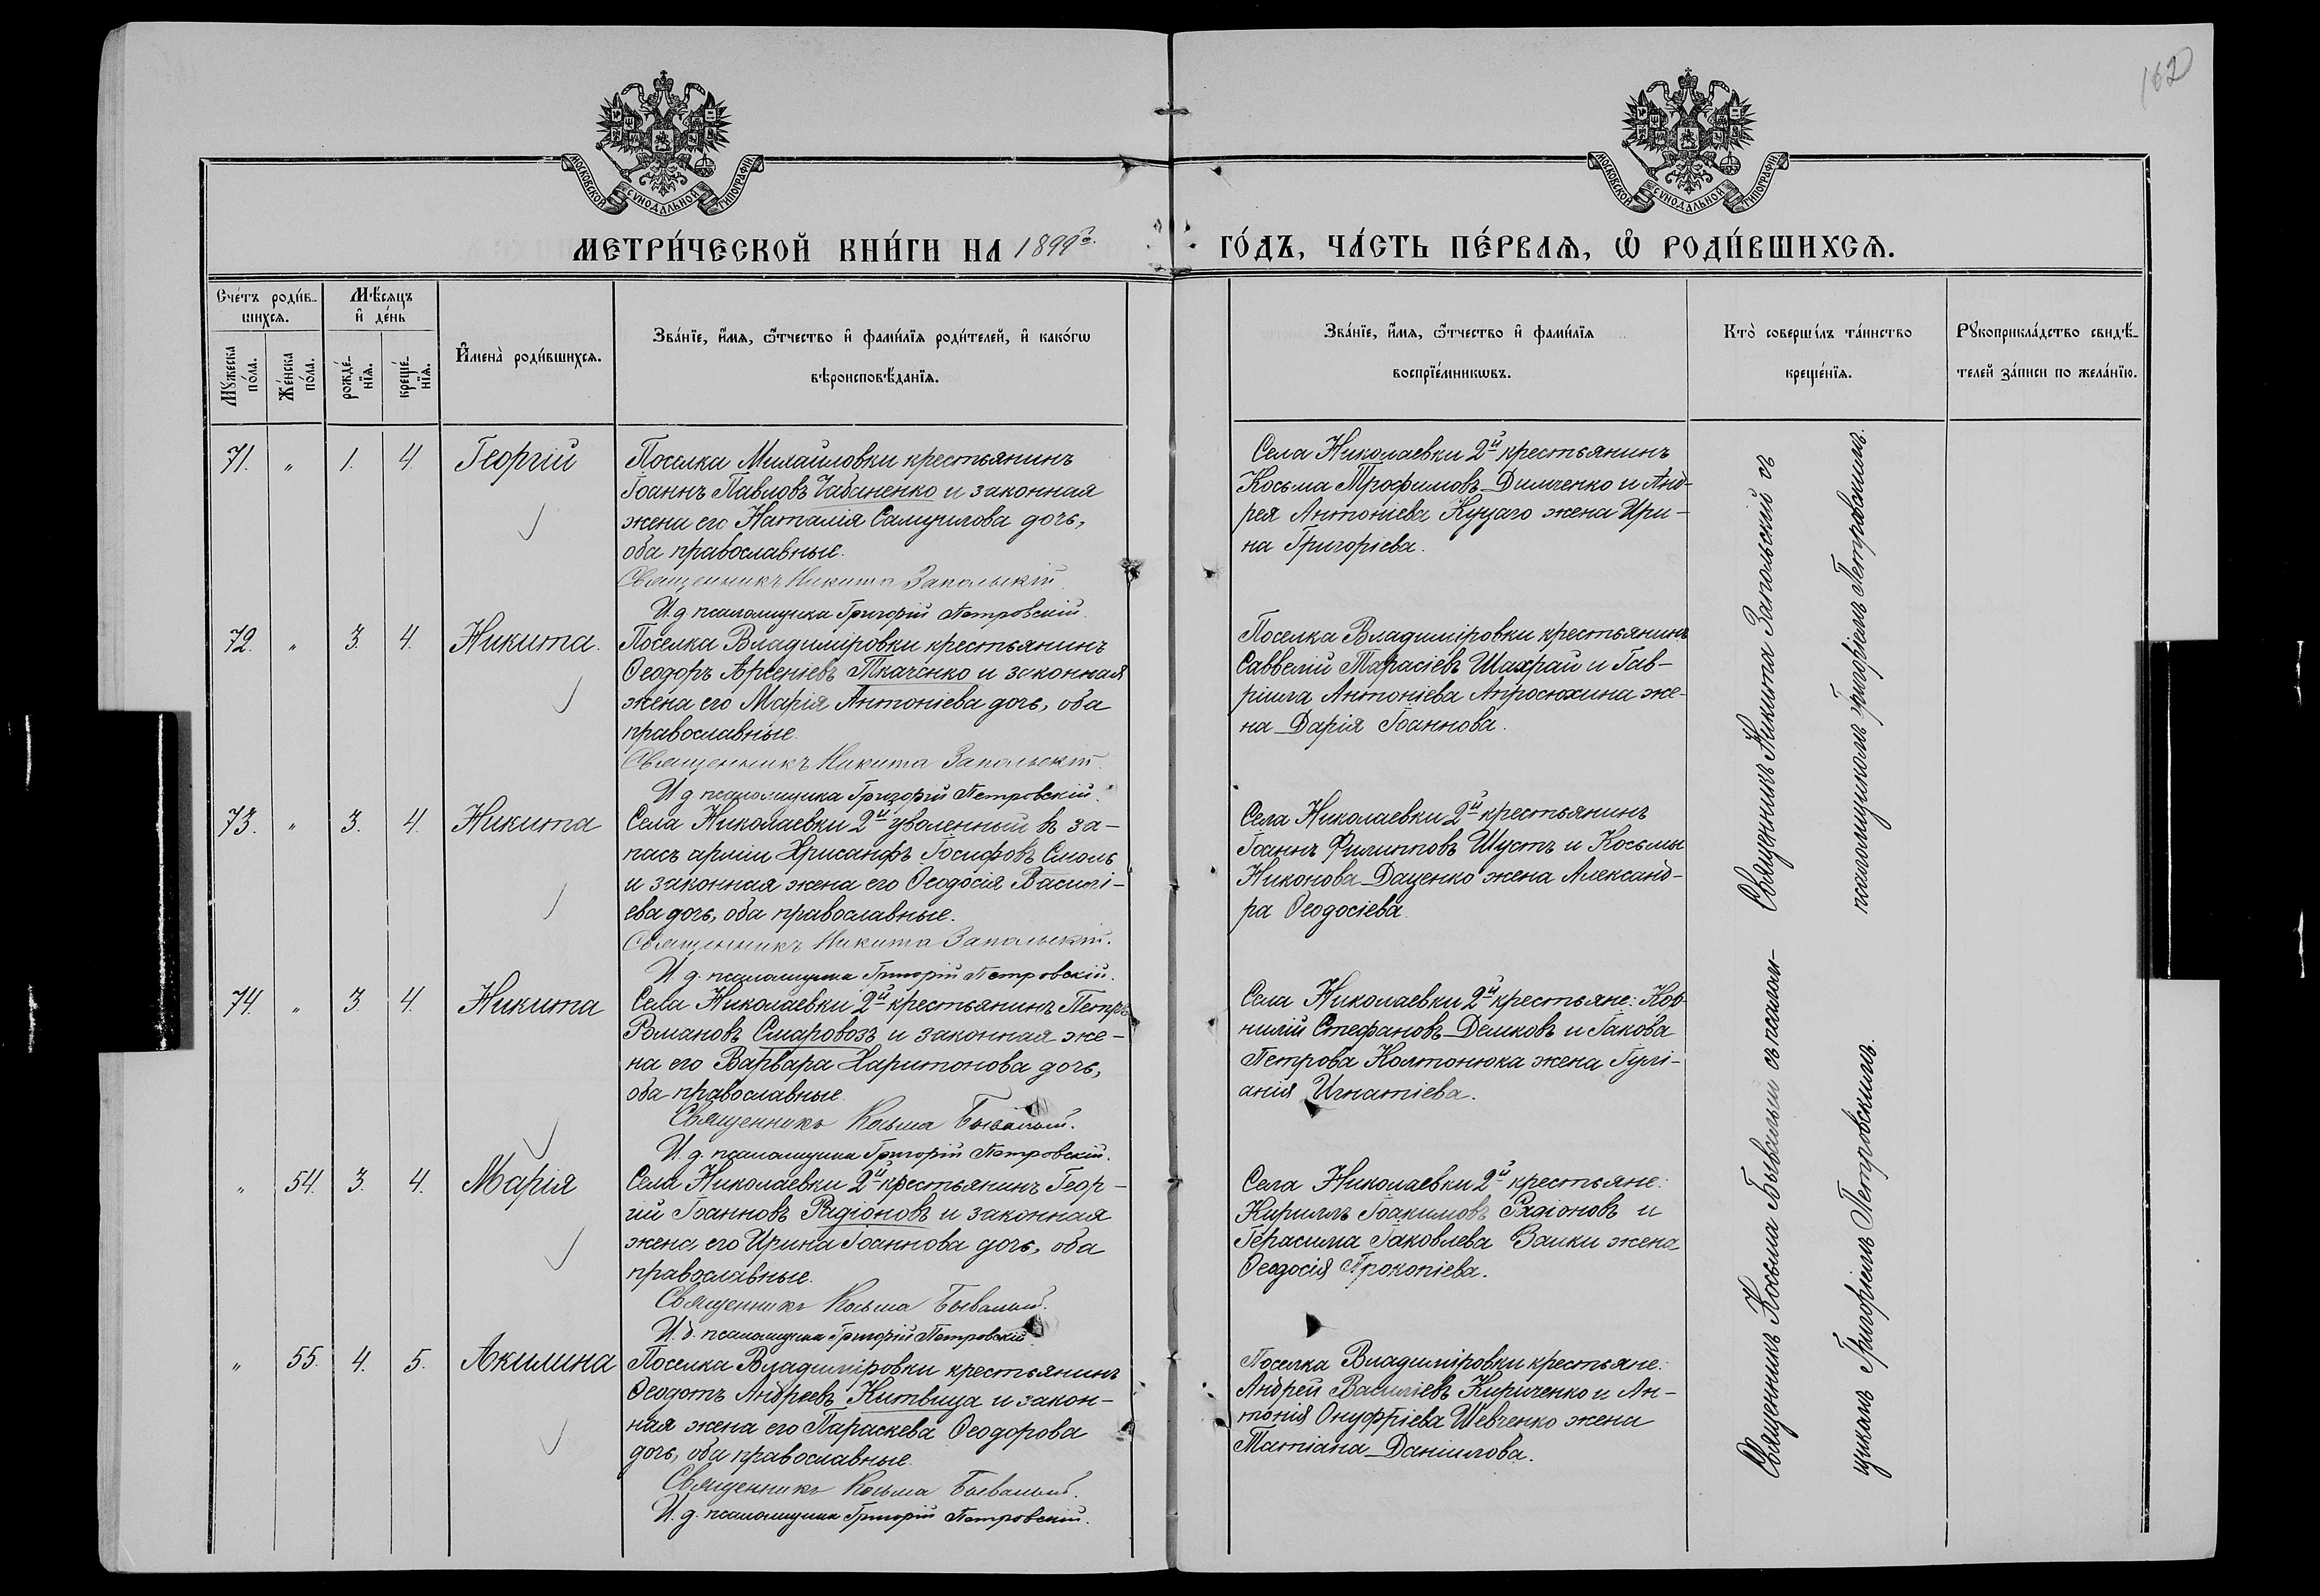 162
МОСКОВСКОЙ СѴНОДАЛЬНОЙ ТИПОГРАФІИ
МОСКОВСКОЙ СѴНОДАЛЬНОЙ ТИПОГРАФІИ
МЕТРИ́ЧЕСКОЙ КНИ́ГИ НА 1899 го.
ГО́ДЪ, ЧА́СТЬ ПЕ́РВАѦ, Ѽ РОДИ́ВШИХСѦ.
Сче́тъ роди́в-
шихсѧ.
Мꙋжеска по́ла.
Же́нска по́ла.
Мѣ́сѧцъ
и҆ де́нь
рожде́-
нїѧ.
креще́-
нїѧ.
И҆мена̀ роди́вшихсѧ.
Зва́нїе, и҆́мѧ, ѻ҆́тчество и҆ фами́лїѧ роди́телей, и҆ како́гѡ
вѣроисповѣ́данїѧ.
Зва́нїе, и҆́мѧ, ѻ҆́тчество и҆ фами́лїѧ
воспрїе́мникѡвъ.
Кто̀ соверши́лъ та́инство
креще́нїѧ.
Рꙋкоприкла́дство свидѣ́-
телей за́писи по жела́нїю.
71. " 1. 4. Георгій
Поселка Михайловки крестьянинъ
Іоаннъ Павловъ Чабаненко и законная
жена его Наталія Самуилова дочь,
оба православные.
Священникъ Никита Запольскій
И. д. псаломщика Григорій Петровскій.
Села Николаевки 2й крестьянинъ
Косьма Трофимовъ Димченко и Анд-
рея Антоніева Куцаго жена Ири-
на Григоріева.
72. " 3. 4. Никита.
Поселка Владиміровки крестьянинъ
Ѳеодоръ Арсеніевъ Ткаченко и законная
жена его Марія Антоніева дочь, оба
православные.
Священникъ Никита Запольскій.
И д псаломщика Григорій Петровскій.
Поселка Владиміровки крестьянинъ
Савватій Тарасіевъ Шахрай и Гав-
ріила Антоніева Апросюхина же-
на Дарія Іоаннова.
73. " 3. 4. Никита
Села Николаевки 2й уволенный в за-
пасъ арміи Хрисанфъ Іосифовъ Смоль
и законная жена его Ѳеодосія Василі-
ева дочь, оба православные.
Священникъ Никита Запольскій.
И. д. псаломщика Григорій Петровскій.
Села Николаевки 2й крестьянинъ
Іоаннъ Филипповъ Шустъ и Косьмы
Никонова Даценко жена Александ-
ра Ѳеодосіева.
74. " 3 4. Никита
Села Николаевки 2й крестьянинъ Петръ
Романовъ Смаровозъ и законная же-
на его Варвара Харитонова дочь,
оба православные.
Священникъ Косьма Бывалый.
И. д. псаломщика Григорій Петровскій.
Села Николаевки 2й крестьяне: Кор-
нилій Стефановъ Демковъ и Іакова
Петрова Колтонюка жена Іулі-
анія Игнатіева.
" 54. 3. 4. Марія
Села Николаевки 2й крестьянинъ Геор-
гій Іоанновъ Радіоновъ и законная
жена его Ирина Іоаннова дочь, оба
православные.
Священникъ Косьма Бывалый.
И. д. псаломщика Григорій Петровскій.
Села Николаевки 2й крестьяне:
Кириллъ Іоакимовъ Радіоновъ и
Герасима Іаковлева Заики жена
Ѳеодосія Прокопіева.
" 55. 4. 5. Акилина
Поселка Владиміровки крестьянинъ
Ѳеодотъ Андреевъ Китвица и закон-
ная жена его Параскева Ѳеодорова
дочь, оба православные.
Священникъ Косьма Бывалый.
И. д. псаломщика Григорій Петровскій.
Поселка Владиміровки крестьяне:
Андрей Василіевъ Кириченко и Ан-
тонія Онуфріева Шевченко жена
Татіана Даниилова.
Священникъ Никита Запольскій съ
псаломщикомъ Григоріемъ Петровскимъ.
Священникъ Косьма Бывалый съ псалом-
щикомъ Григоріемъ Петровскимъ.